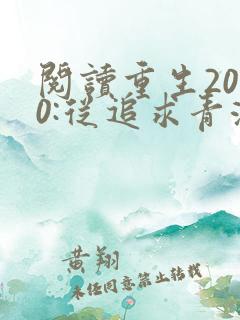 閱讀重生20
0:從追求青
黄翔
未经同意禁止转载